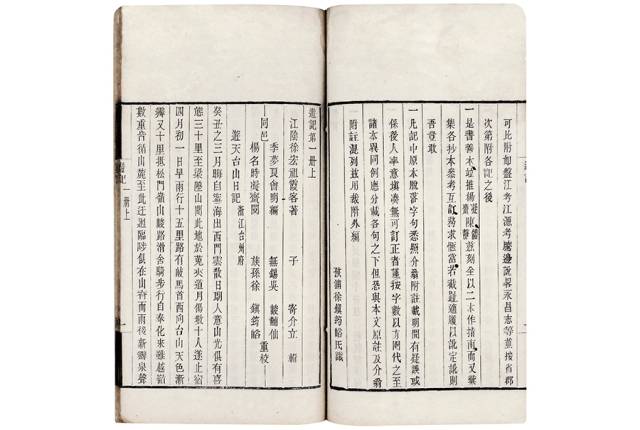 可比附如盤江考江源考隨邊說畧永昌志等並按省郡
次第附各記之後
一是書善本推楊陳刻全以二本作指南而又彙
集各抄本悉考互訂務求恆當若截趾適履以訛定訛則
吾豈敢
一凡記中原本脫落字句悉照分翁附註載明間有疑誤或
係後人率意填湊無可訂正者謹按字數以方圈代之至
諸本異同例應分載各句之下但恐與本文原註及分翁
附註混列茲用裁附外編
徐鎮筠峪氏識
遊記第一冊上
江陰徐宏祖霞客著 子 寄介立 輯
季夢良會明編 無錫吳 黼仙
同邑 重校
楊名時凝齋閱 族孫徐 鎮筠峪
遊天台山日記 浙江台州府
癸丑之三月晦自寧海出西門雲散日朗人意山光俱有喜
態三十里至梁隍山聞此地於菟夾道月傷數十人遂止宿
四月初一日早雨行十五里路有岐馬首西向台山天色漸
霽又十里抵松門嶺山峻路滑舍騎步行自奉化來雖越嶺
數重皆循山麓至此迂迴臨陟俱在山脊而雨後新霽泉聲
遊記 一冊上